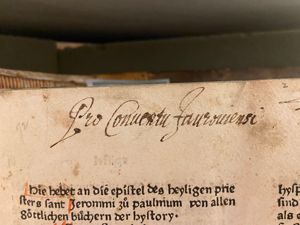 Pro Conventu Jauroviensi
Hie hebet an die epistel des heyligen prie
sters sant Jeronimi zů paulinum von allen
göttlichen büchern der hystory.
hysp
sind
als